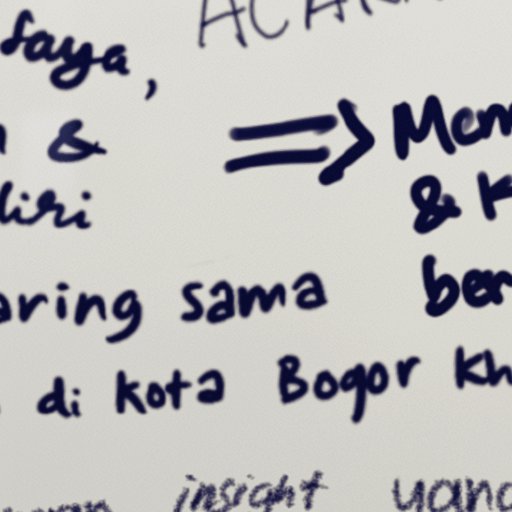 saya,
& => Mem
diri & K
aring sama ber
di kota Bogor Kh
insight yang